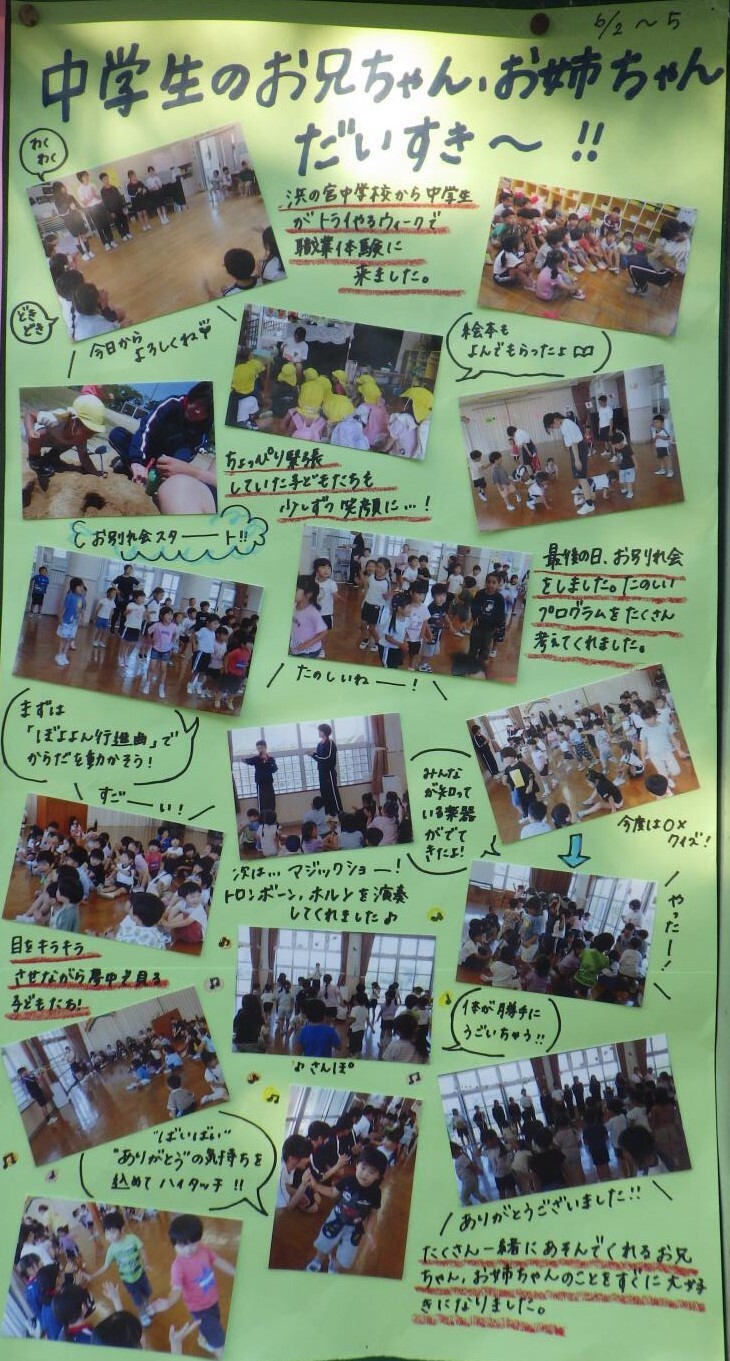 6/2～5
中学生のお兄ちゃん、お姉ちゃん
だいすき～!!
わく
わく
浜の宮中学校から中学生
がトライやるウィークで
職業体験に
来ました。
どき
どき
今日から
よろしくね♥
絵本も
よんでもらったよ
ちょっぴり緊張
していた子どもたちも
少しずつ笑顔に…!
お別れ会スタート!!
最後の日、お別れ会
をしました。たのしい
プログラムをたくさん
考えてくれました。
たのしいねー!
まずは
「ぼよよん行進曲」で
からだを動かそう!
すごーい!
みんな
が知って
いる楽器
がでて
きたよ!
今度は○×
クイズ!
次は…マジックショー!
トロンボーン、ホルンを演奏
してくれました♪
やったー!
目をキラキラ
させながら夢中で見る
子どもたち!
体が勝手に
うごいちゃう!!
♪さんぽ
"ばいばい"
"ありがとう"の気持ちを
込めてハイタッチ!!
ありがとうございました!!
たくさん一緒にあそんでくれるお兄
ちゃん、お姉ちゃんのことをすぐに大好
きになりました。